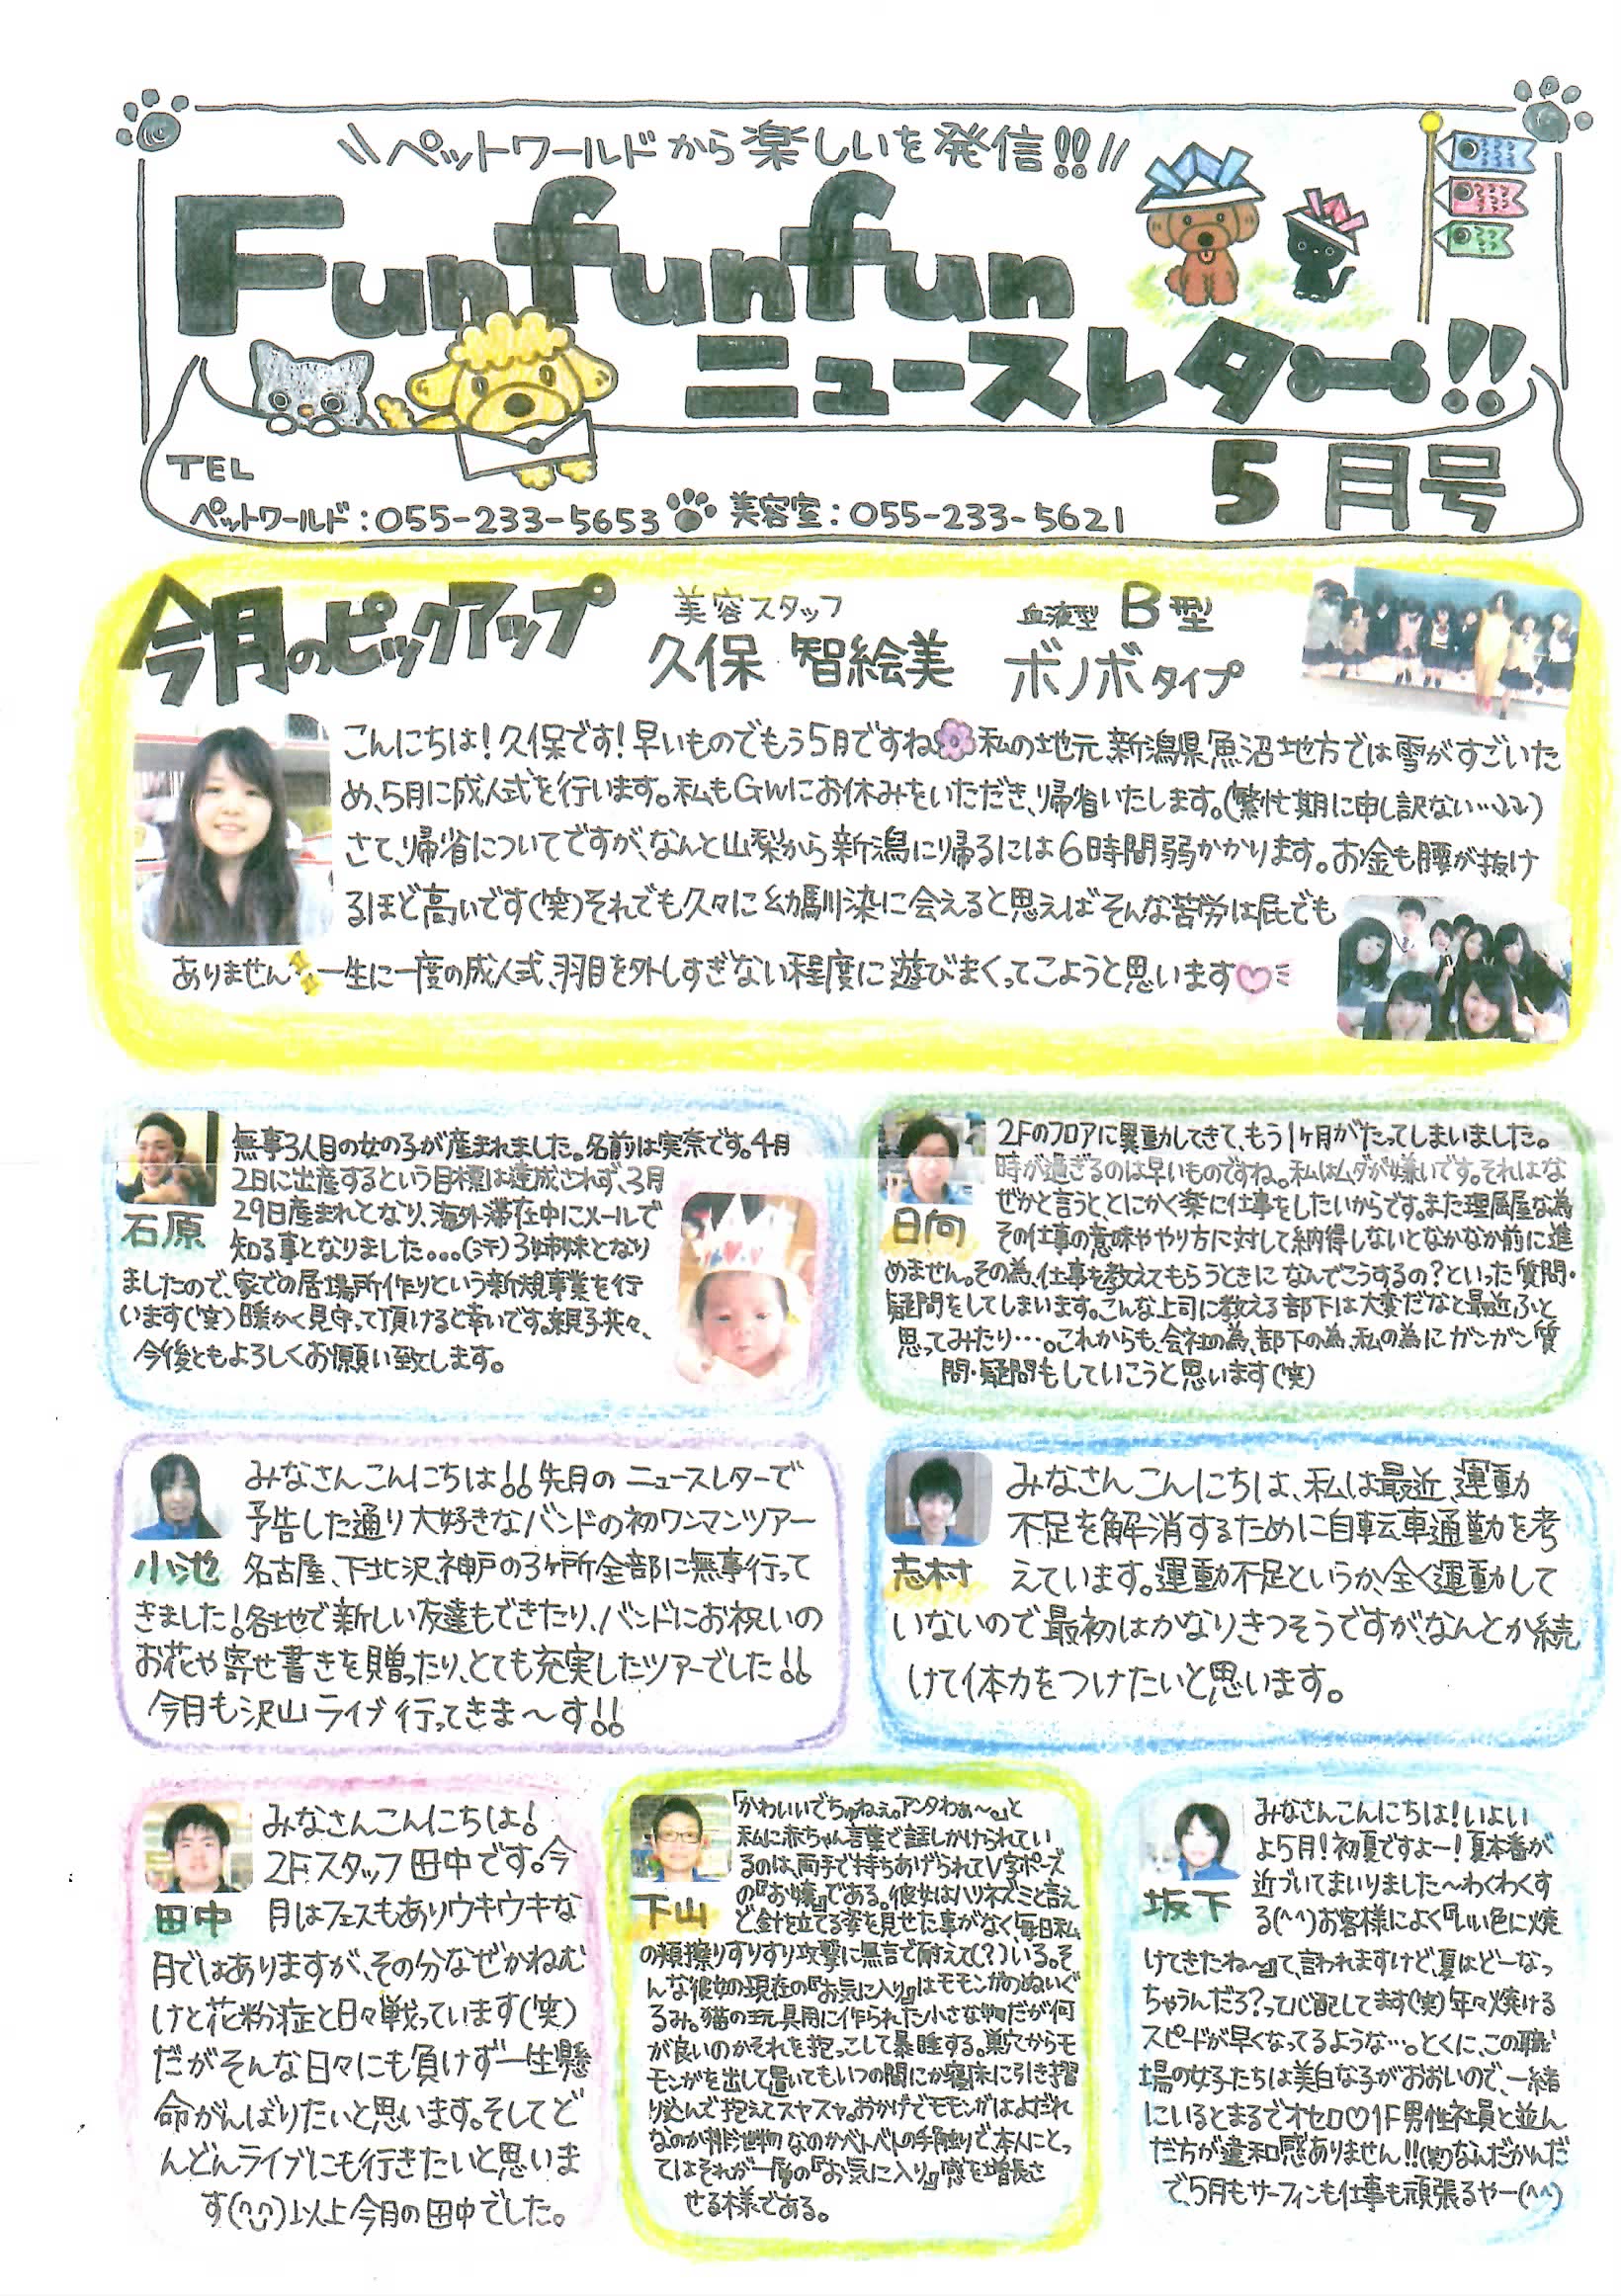 \\ペットワールドから楽しいを発信!!//
Funfunfun
ニュースレター!!
5月号
TEL
ペットワールド:055-233-5653 美容室:055-233-5621
今月のピックアップ
美容スタッフ
久保 智絵美
血液型 B型
ボノボタイプ
こんにちは!久保です!早いものでもう5月ですね 私の地元、新潟県魚沼地方では雪がすごいた
め、5月に成人式を行います。私もGWにお休みをいただき、帰省いたします。(繁忙期に申し訳ない…↓↓)
さて、帰省についてですが、なんと山梨から新潟に帰るには6時間弱かかります。お金も腰が抜け
るほど高いです(笑)それでも久々に幼馴染に会えると思えばそんな苦労は屁でも
ありません 一生に一度の成人式、羽目を外しすぎない程度に遊びまくってこようと思います♡
石原
無事3人目の女の子が産まれました。名前は実奈です。4月
2日に出産するという目標は達成されず、3月
29日産まれとなり、海外滞在中にメールで
知る事となりました。。。(汗)3姉妹となり
ましたので、家での居場所作りという新規事業を行
います(笑)暖かく見守って頂けると幸いです。親子共々、
今後ともよろしくお願い致します。
日向
2Fのフロアに異動してきて、もう1ヶ月がたってしまいました。
時が過ぎるのは早いものですね。私はムダが嫌いです。それはな
ぜかと言うと、とにかく楽に仕事をしたいからです。また理屈屋な為
その仕事の意味ややり方に対して納得しないとなかなか前に進
めません。その為、仕事を教えてもらうときになんでこうするの?といった質問・
疑問をしてしまいます。こんな上司に教える部下は大変だなと最近ふと
思ってみたり…。これからも、会社の為、部下の為、私の為にガンガン質
問・疑問もしていこうと思います(笑)
小池
みなさんこんにちは!!先月のニュースレターで
予告した通り大好きなバンドの初ワンマンツアー
名古屋、下北沢、神戸の3ヶ所全部に無事行って
きました!各地で新しい友達もできたり、バンドにお祝いの
お花や寄せ書きを贈ったり、とても充実したツアーでした!!
今月も沢山ライブ行ってきま〜す!!
志村
みなさんこんにちは、私は最近、運動
不足を解消するために自転車通勤を考
えています。運動不足というか、全く運動して
いないので最初はかなりきつそうですが、なんとか続
けて体力をつけたいと思います。
田中
みなさんこんにちは!
2Fスタッフ田中です。今
月はフェスもありウキウキな
月ではありますが、その分なぜかねむ
けと花粉症と日々戦っています(笑)
だがそんな日々にも負けず一生懸
命がんばりたいと思います。そしてど
んどんライブにも行きたいと思いま
す(^^)以上今月の田中でした。
下山
「かわいいでちゅねぇ。アンタわぁ〜。」と
私に赤ちゃん言葉で話しかけられてい
るのは、両手で持ちあげられてV字ポーズ
の『お嬢』である。彼女はハリネズミと言え
ど針を立てる姿を見せた事がなく、毎日私
の頬擦りすりすり攻撃に無言で耐えて(?)いる。そ
んな彼女の現在の『お気に入り』はモモンガのぬいぐ
るみ。猫の玩具用に作られた小さな物だが何
が良いのかそれを抱っこして暴睡する。巣穴からモ
モンガを出して置いてもいつの間にか寝床に引き摺
り込んで抱えてスヤスヤ。おかげでモモンガはよだれ
なのか排泄物なのかベトベトの手触りで、本人にとっ
てはそれが一層の『お気に入り』感を増長さ
せる様である。
坂下
みなさんこんにちは!いよい
よ5月!初夏ですよー!夏本番が
近づいてまいりました〜わくわくす
る(^^)お客様によく『いい色に焼
けてきたね〜』て、言われますけど、夏はどーなっ
ちゃうんだろ?って心配してます(笑)年々焼ける
スピードが早くなってるような…。とくに、この職
場の女子たちは美白な子がおおいので、一緒
にいるとまるでオセロ♡1F男性社員と並ん
だ方が違和感ありません!!(笑)なんだかんだ
で、5月もサーフィンも仕事も頑張るやー(^^)